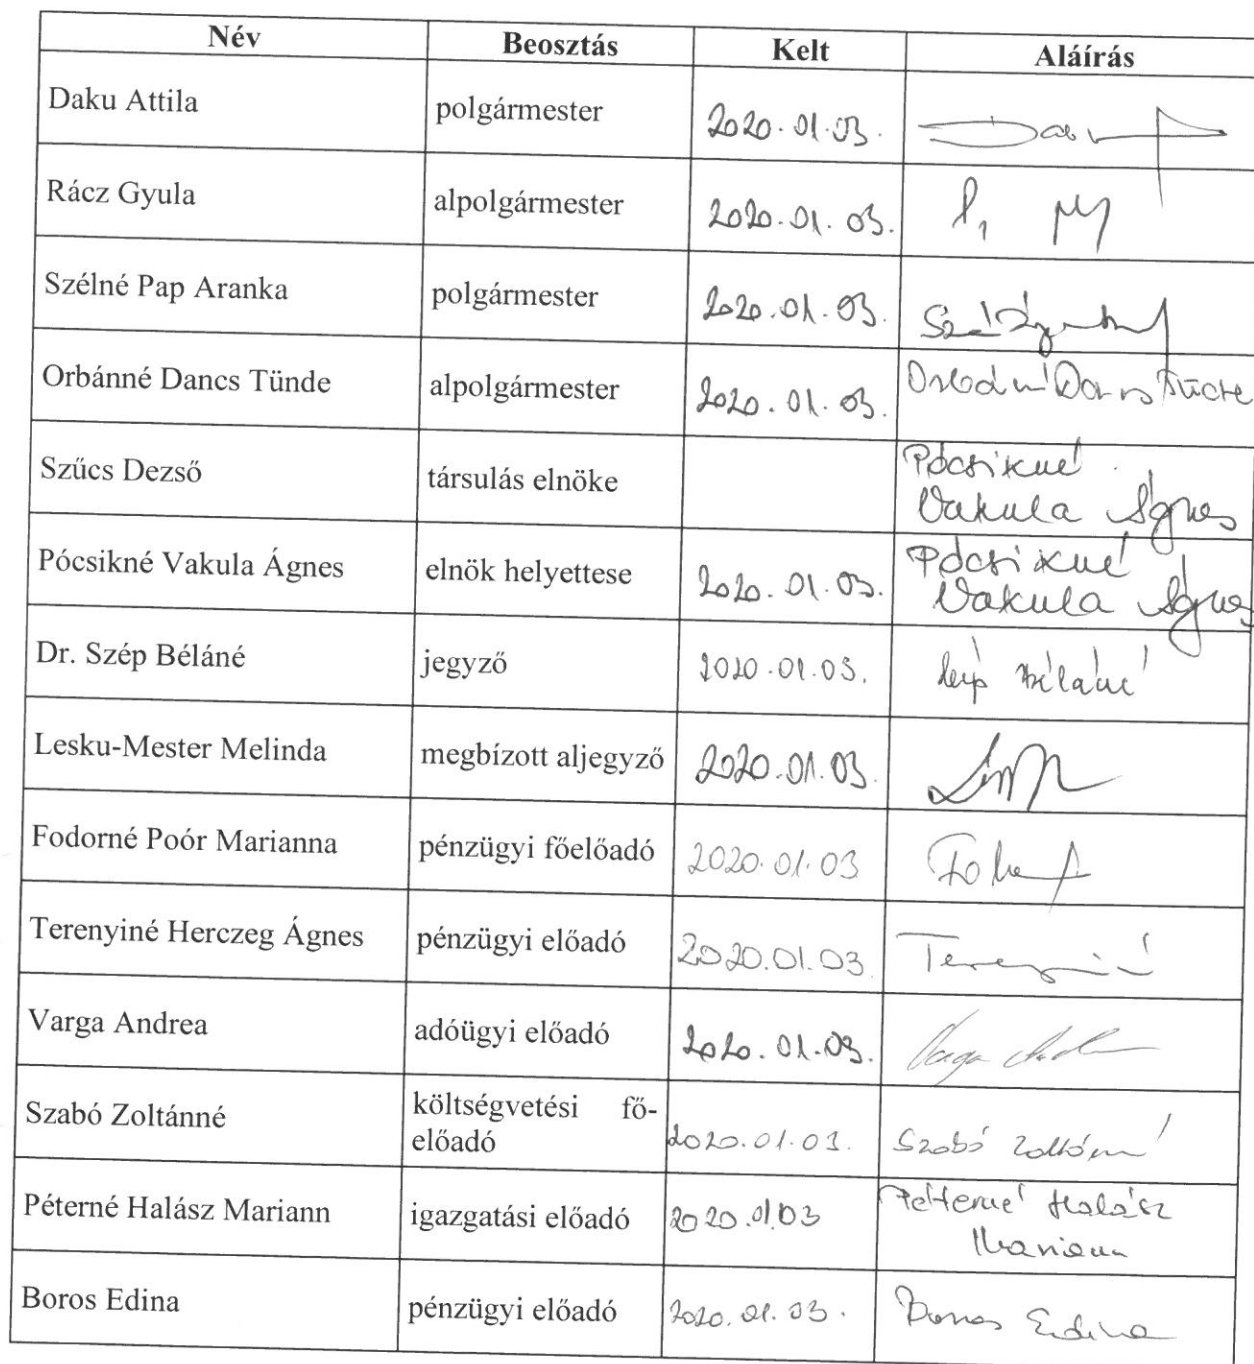 Név Beosztás Kelt Aláírás
Daku Attila polgármester 2020.01.03.
Rácz Gyula alpolgármester 2020.01.03.
Szélné Pap Aranka polgármester 2020.01.03.
Orbánné Dancs Tünde alpolgármester 2020.01.03.
Szűcs Dezső társulás elnöke Pócsikné
Vakula Ágnes
Pócsikné Vakula Ágnes elnök helyettese 2020.01.03. Pócsikné
Vakula Ágnes
Dr. Szép Béláné jegyző 2020.01.03.
Lesku-Mester Melinda megbízott aljegyző 2020.01.03.
Fodorné Poór Marianna pénzügyi főelőadó 2020.01.03
Terenyiné Herczeg Ágnes pénzügyi előadó 2020.01.03. Terenyiné
Varga Andrea adóügyi előadó 2020.01.03. Varga
Szabó Zoltánné költségvetési fő-
előadó 2020.01.03. Szabó Zoltánné
Péterné Halász Mariann igazgatási előadó 2020.01.03 Péterné Halász
Mariann
Boros Edina pénzügyi előadó 2020.01.03. Boros Edina